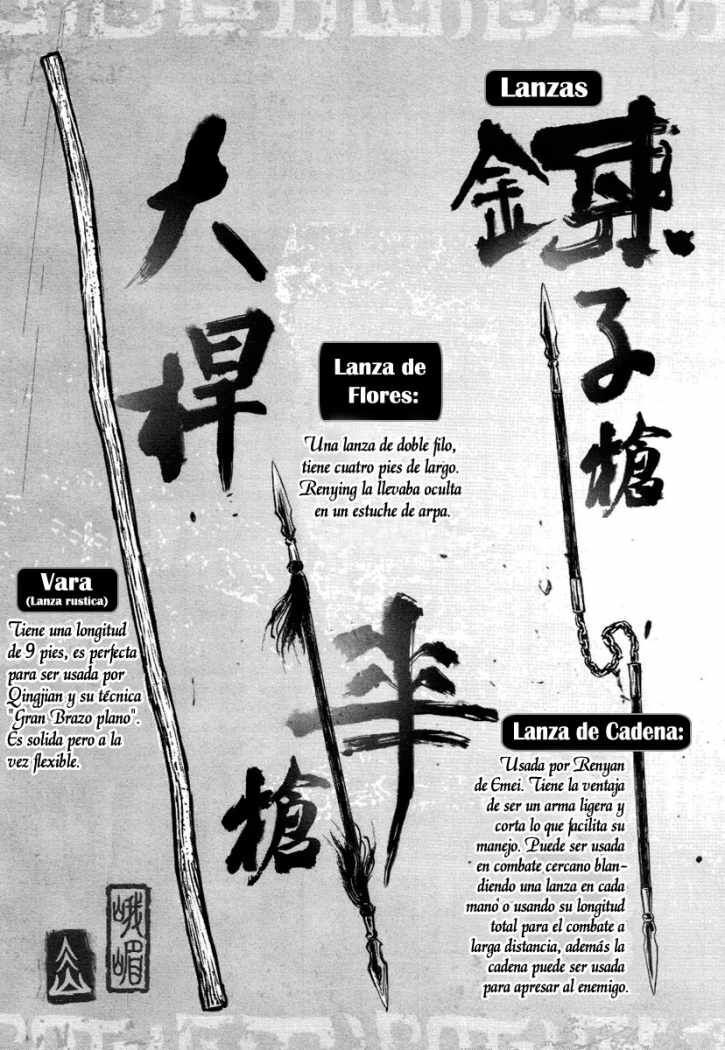 Lanzas
鏈
子
槍
大
桿
Lanza de
Flores:
Una lanza de doble filo,
tiene cuatro pies de largo.
Renying la llevaba oculta
en un estuche de arpa.
半
槍
Vara
(Lanza rustica)
Tiene una longitud
de 9 pies, es perfecta
para ser usada por
Qingjian y su técnica
"Gran Brazo plano".
Es solida pero a la
vez flexible.
Lanza de Cadena:
Usada por Renyan
de Emei. Tiene la ventaja
de ser un arma ligera y
corta lo que facilita su
manejo. Puede ser usada
en combate cercano blan-
diendo una lanza en cada
mano o usando su longitud
total para el combate a
larga distancia, además la
cadena puede ser usada
para apresar al enemigo.
峨
嵋